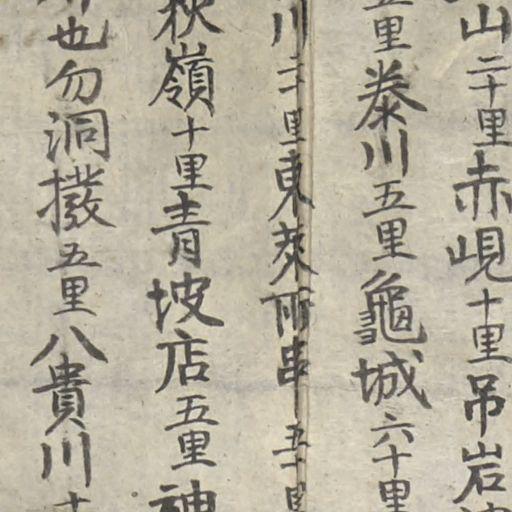 山二十里赤峴十里吊岩
五里泰川五里龜城六十里
川二十里東萊所串五十里
狄嶺十里青坡店五里神
也勿洞撥五里八貴川十